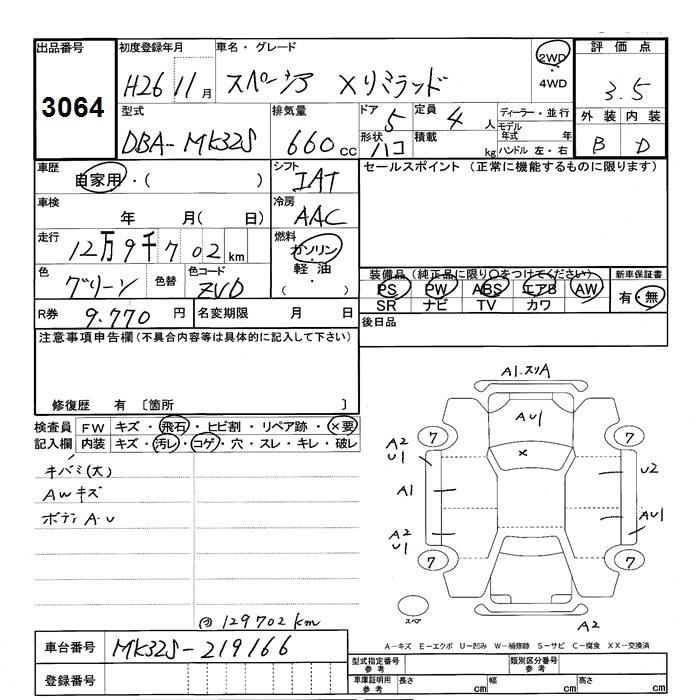 出品番号 初度登録年月 車名・グレード 2WD ・ 4WD 評価点
3064 H26 11月 スペーシア Xリミテッド 3.5
型式 排気量 ドア 5 定員 4人 ディーラー・並行 外装 内装
DBA-MK32S 660cc 形状 ハコ 積載 kg モデル年式 年 ハンドル 左・右 B D
車歴 自家用・( ) シフト IAT セールスポイント (正常に機能するものに限ります)
車検 年 月(日) 冷房 AAC
走行 12万9千702km 燃料 ガソリン・軽油・( )
色 グリーン 色替 色コード ZVD
装備品 (純正品に限り○をつけてください) 新車保証書
PS PW ABS エアB AW 有・無
SR ナビ TV カワ
R券 9.770円 名変期限 月 日 後日品
注意事項申告欄 (不具合内容等は具体的に記入して下さい)
修復歴 有 〔箇所 〕
検査員記入欄 FW キズ・飛石・ヒビ割・リペア跡・×要
内装 キズ・汚レ・コゲ・穴・スレ・キレ・破レ
キバミ(大)
AWキズ
ボディA.U
@129702km
A1.スリA
AU1
7 7
×
A2
U1
U2
A1
AU1
A2
U1
7 7
スペア
A2
車台番号 MK32S-219166
登録番号
A-キズ E-エクボ U-凹み W-補修跡 S-サビ C-腐食 XX-交換済
型式指定番号 参考 類別区分番号 参考
車庫証明用 参考 長さ cm 幅 cm 高さ cm